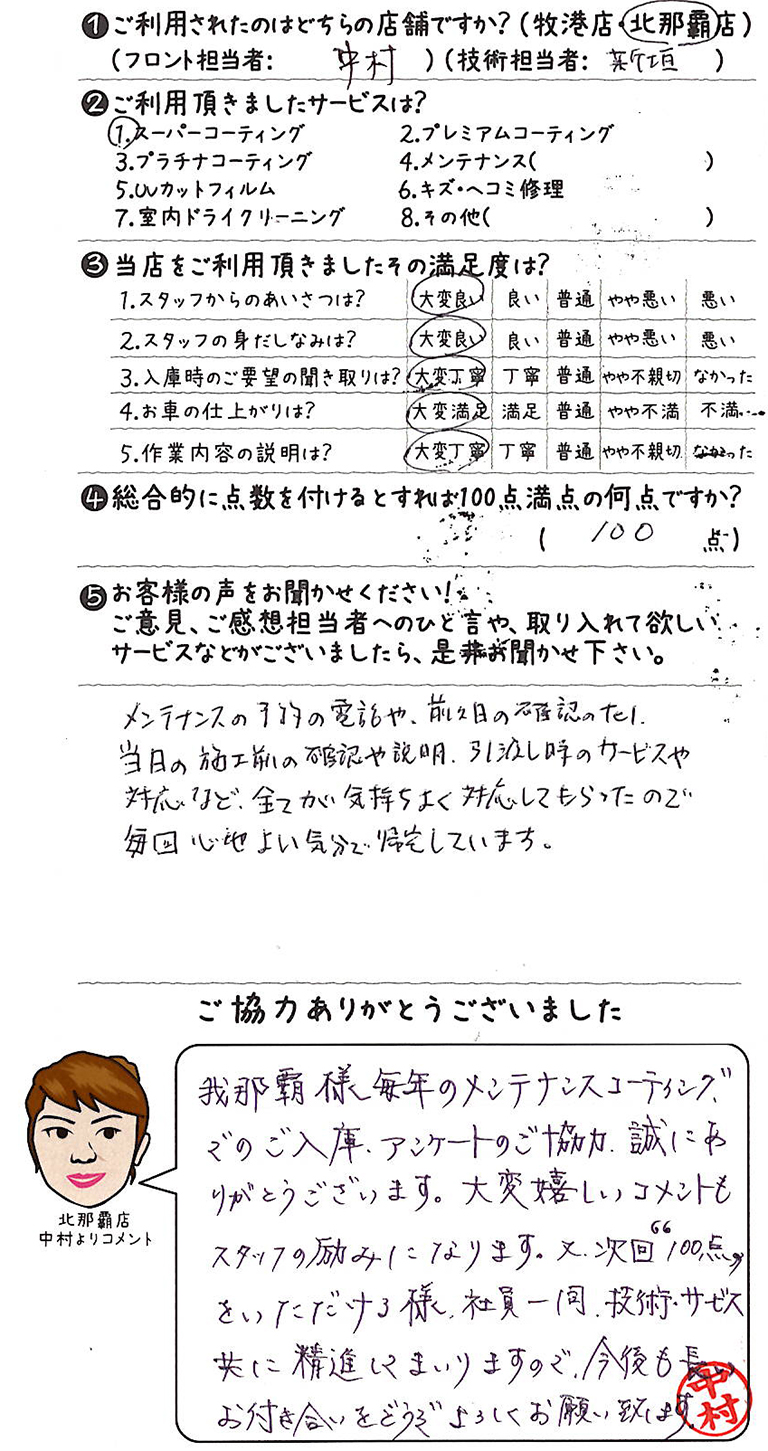 ❶ご利用されたのはどちらの店舗ですか?(牧港店・北那覇店)
(フロント担当者: 中村 )(技術担当者: 新垣 )
❷ご利用頂きましたサービスは?
1.スーパーコーティング 2.プレミアムコーティング
3.プラチナコーティング 4.メンテナンス( )
5.UVカットフィルム 6.キズ・ヘコミ修理
7.室内ドライクリーニング 8.その他( )
❸当店をご利用頂きましたその満足度は?
1.スタッフからのあいさつは? 大変良い 良い 普通 やや悪い 悪い
2.スタッフの身だしなみは? 大変良い 良い 普通 やや悪い 悪い
3.入庫時のご要望の聞き取りは? 大変丁寧 丁寧 普通 やや不親切 なかった
4.お車の仕上がりは? 大変満足 満足 普通 やや不満 不満
5.作業内容の説明は? 大変丁寧 丁寧 普通 やや不親切 なかった
❹総合的に点数を付けるとすれば100点満点の何点ですか?
( 100 点)
❺お客様の声をお聞かせください!
ご意見、ご感想担当者へのひと言や、取り入れて欲しい
サービスなどがございましたら、是非お聞かせ下さい。
メンテナンスの予約の電話や、前日の確認のTEL
当日の施工前の確認や説明、引渡し時のサービスや
対応など、全てが気持ちよく対応してもらったので
毎回心地よい気分で帰宅しています。
ご協力ありがとうございました
我那覇様、毎年のメンテナンスコーティング、
でのご入庫、アンケートのご協力、誠にあ
りがとうございます。大変嬉しいコメントも
スタッフの励みになります。又、次回"100点"
をいただける様、社員一同、技術・サービス
共に精進してまいりますので、今後も長い
お付き合いをどうぞよろしくお願い致します。
中村
北那覇店
中村よりコメント